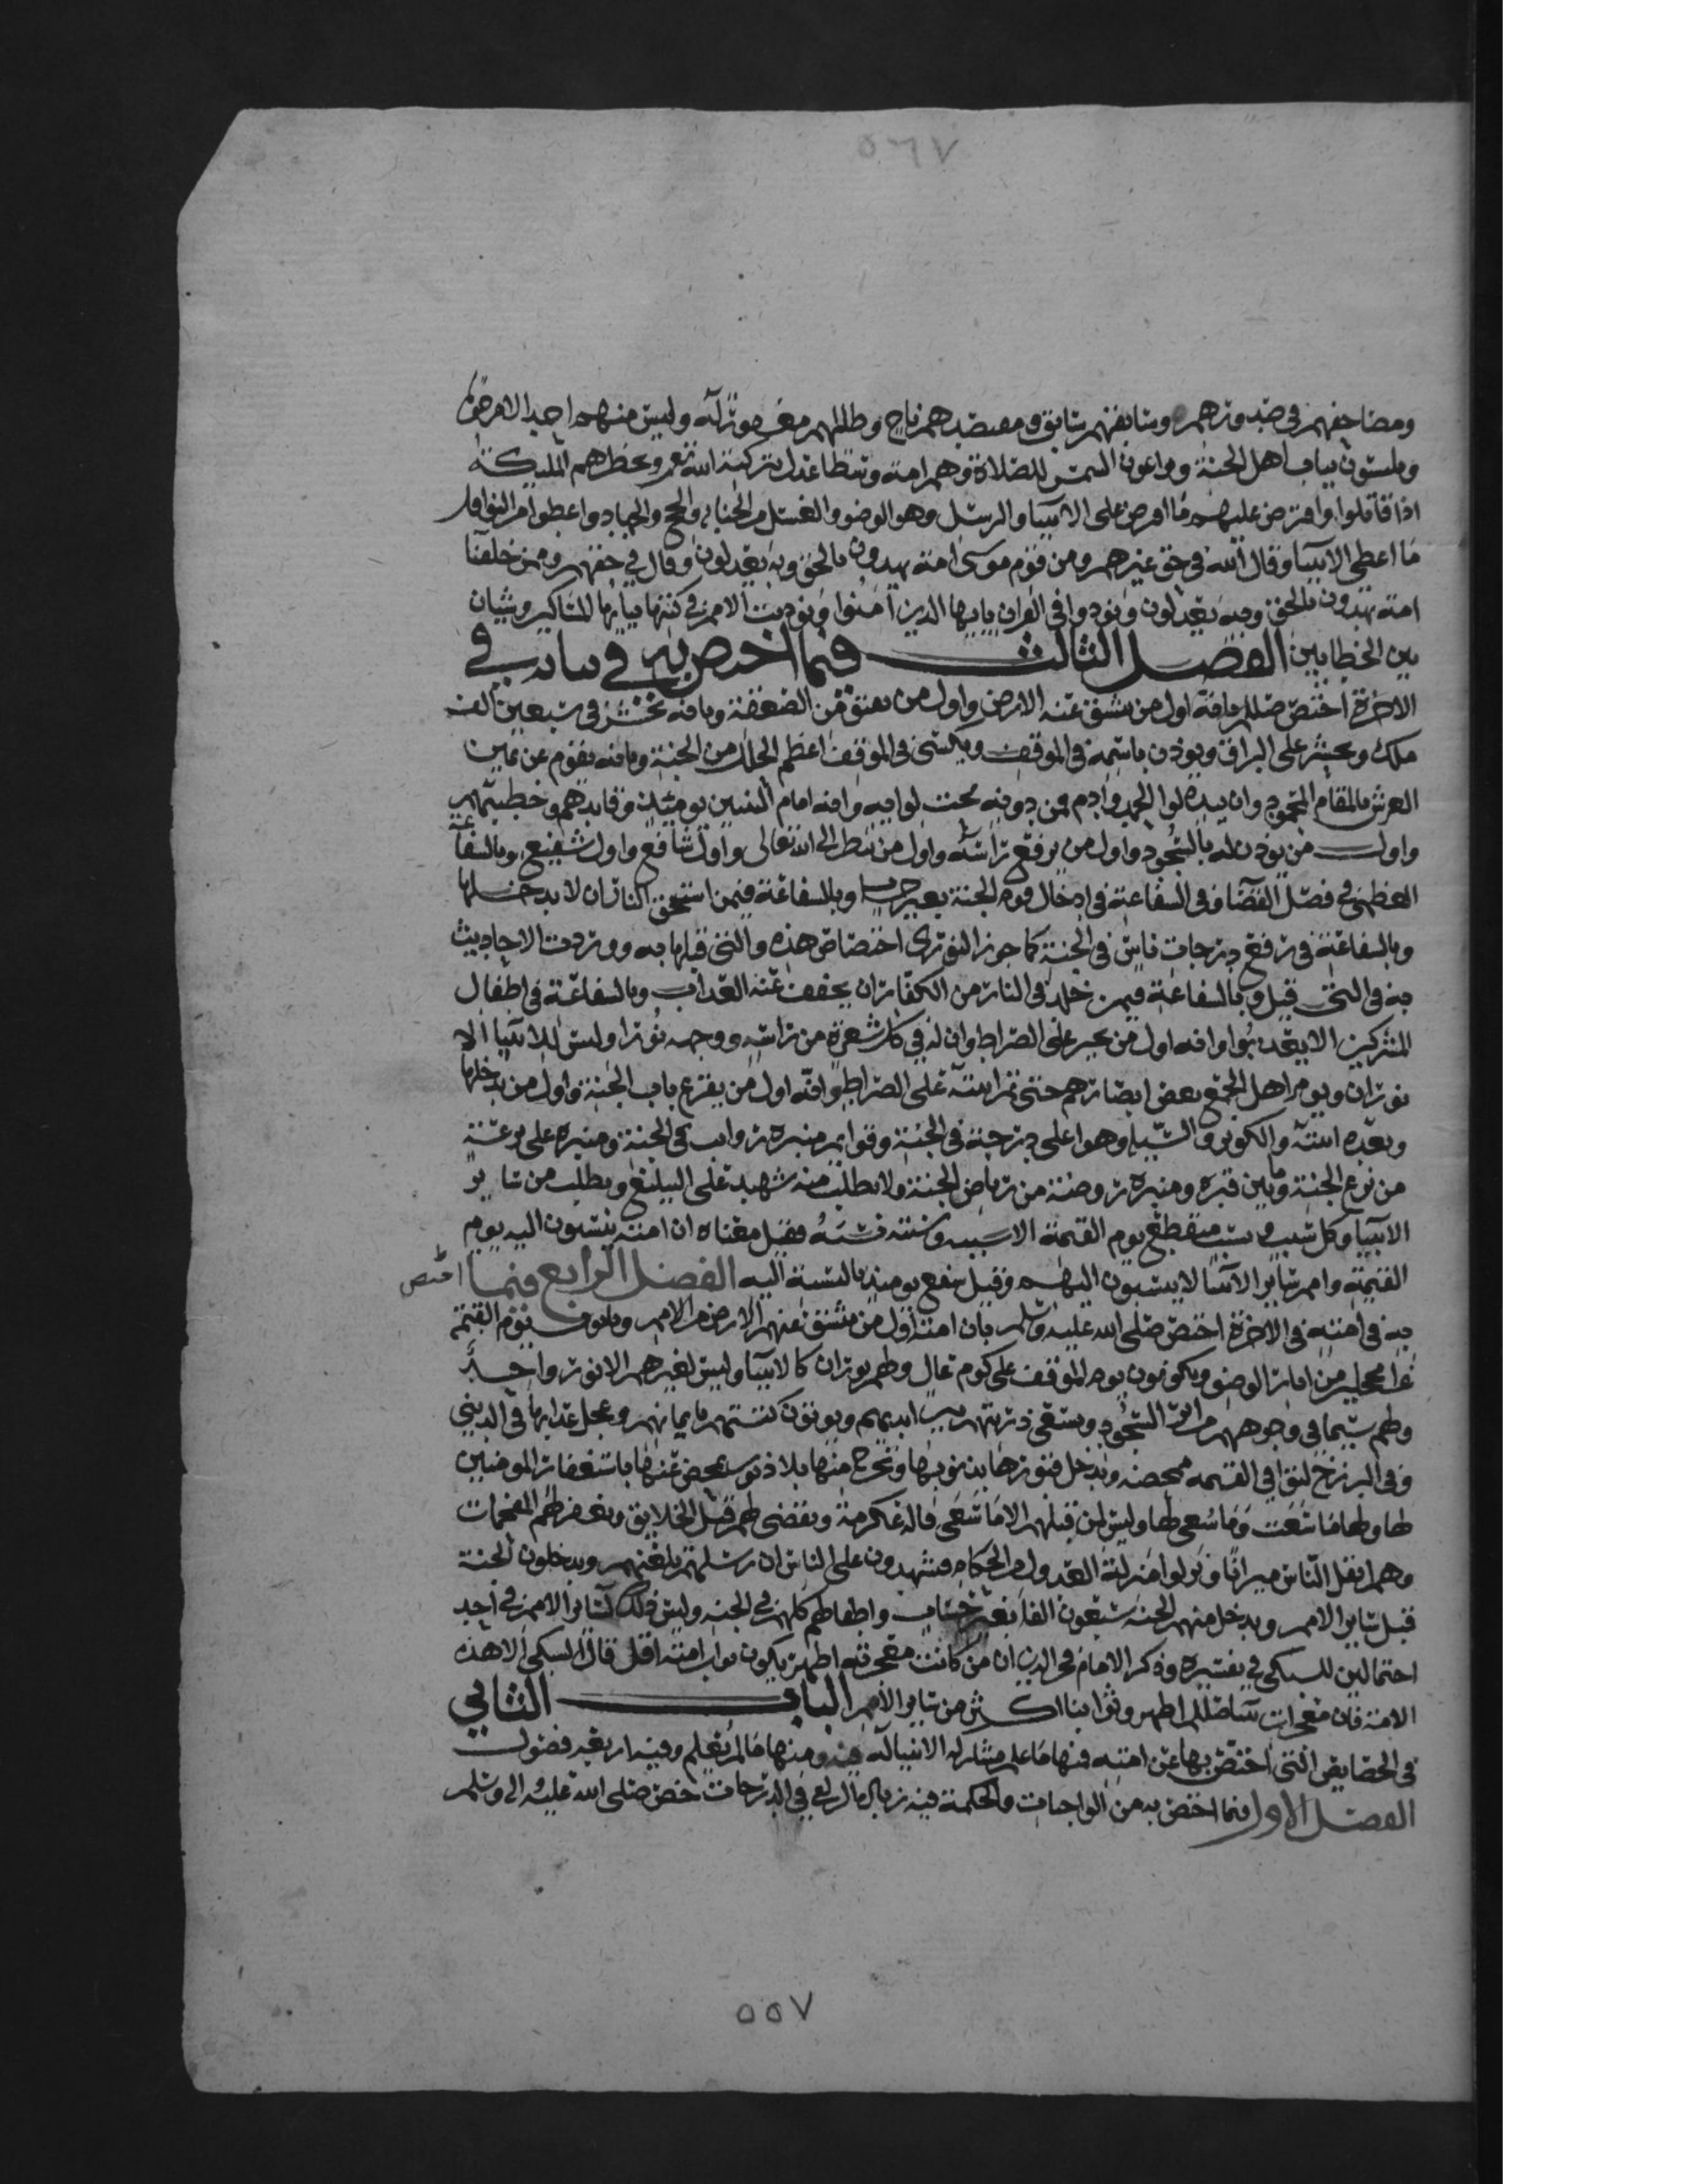 ٥٦٧
ومصاحفهم في صدورهم وسابقهم سابق ومقتصدهم ناج وظالمهم مغفور له وليس منهم احد الا مرحوما
ويلبسون ثياب اهل الجنة ويراعون الشمس للصلاة وهم امة وسطا عدل بتزكية الله تعالى وتحضرهم المليكة
اذا قاتلوا وافترض عليهم ما افترض على الانبيا والرسل وهو الوضو والغسل من الجنابة والحج والجهاد واعطوا من النوافل
ما اعطى الانبيا وقال الله في حق غيرهم ومن قوم موسى امة يهدون بالحق وبه يعدلون وقال في حقهم وممن خلقنا
امة يهدون بالحق وبه يعدلون ونودوا في القران يايها الذين آمنوا ونوديت الامم في كتبها بيايها المساكين وشتان
بين الخطابين الفصل الثالث فيما اختص به في ذاته في
الاخرة اختص صللم بانه اول من تنشق عنه الارض واول من يفيق من الصعقة وبانه يحشر في سبعين الف
ملك ويحشر على البراق ويوذن باسمه في الموقف ويكسى في الموقف اعظم الحلل من الجنة وبانه يقوم عن يمين
العرش بالمقام المحمود وان بيده لوا الحمد وادم فمن دونه تحت لوايه وانه امام النبيين يوميذ وقايدهم وخطيبهم
واول من يوذن له بالسجود واول من يرفع راسه واول من ينظر الى الله تعالى واول شافع واول شفيع وبالشفاعة
العظمى في فصل القضا وفي الشفاعة في ادخال قوم الجنة بغير حساب وبالشفاعة فيمن استحق النار ان لا يدخلها
وبالشفاعة في رفع درجات ناس في الجنة كما جوز النووي اختصاص هذه والتي قبلها به ووردت الاحاديث
به في التي قبل وبالشفاعة فيمن خلد في النار من الكفار ان يخفف عنه العذاب وبالشفاعة في اطفال
المشركين الا يعذبوا وانه اول من يجيز على الصراط وان له في كل شعرة من راسه ووجهه نورا وليس للانبيا الا
نوران ويومر اهل الجمع بغض ابصارهم حتى تمر ابنته على الصراط وانه اول من يقرع باب الجنة واول من يدخلها
وبعده ابنته والكوثر والوسيلة وهو اعلى درجة في الجنة وقوايم منبره رواتب في الجنة ومنبره على ترعة
من ترع الجنة وما بين قبره ومنبره روضة من رياض الجنة ولا يطلب منه شهيد على البليغ ويطلب من ساير
الانبيا وكل سبب ونسب منقطع يوم القيمة الا سببه ونسبه فقيل معناه ان امته ينسبون اليه يوم
القيمة وامم ساير الانبيا لا ينسبون اليهم وقيل ينتفع يوميذ بالنسبة اليه الفصل الرابع فيما اختص
به في امته في الاخرة اختص صلى الله عليه وسلم بان امته اول من تنشق عنهم الارض من الامم وياتون يوم القيمة
غرا محجلين من اثار الوضو ويكونون يوم الموقف على كوم عال ولهم نوران كالانبيا وليس لغيرهم الا نور واحد
ولهم سيما في وجوههم من اثر السجود ويسعى ذريتهم بين ايديهم ويوتون كتبهم بايمانهم وعجل عذابها في الدنيى
وفي البرزخ لتوافي القيمه ممحصه وتدخل قبورها بذنوبها وتخرج منها بلا ذنوب تمحص عنها باستغفار المومنين
لها ولها ما سعت وما سعي لها وليس لمن قبلهم الا ما سعى قاله عكرمة ويقضى لهم قبل الخلايق ويغفر لهم المقحمات
وهم اثقل الناس ميزانا ونزلوا منزلة العدول من الحكام فيشهدون على الناس ان رسلهم بلغتهم ويدخلون الجنة
قبل ساير الامم ويدخل منهم الجنه سبعون الفا بغير حساب واطفالهم كلهم في الجنه وليس ذلك لساير الامم في احد
احتمالين للسبكي في تفسيره وذكر الامام فخر الدين ان من كانت معجزته اظهر يكون ثواب امته اقل قال السبكي الا هذه
الامة فان معجزات نبينا صللم اظهر وثوابنا اكثر من ساير الامم الباب الثاني
في الخصايص التي اختص بها عن امته فمنها ما علم مشاركة الانبيا له فيه ومنها ما لم يعلم وفيه اربعة فصول
الفصل الاول فيما اختص به من الواجبات والحكمة فيه زيادة الزلفى في الدرجات خص صلى الله عليه اله وسلم
٥٥٧